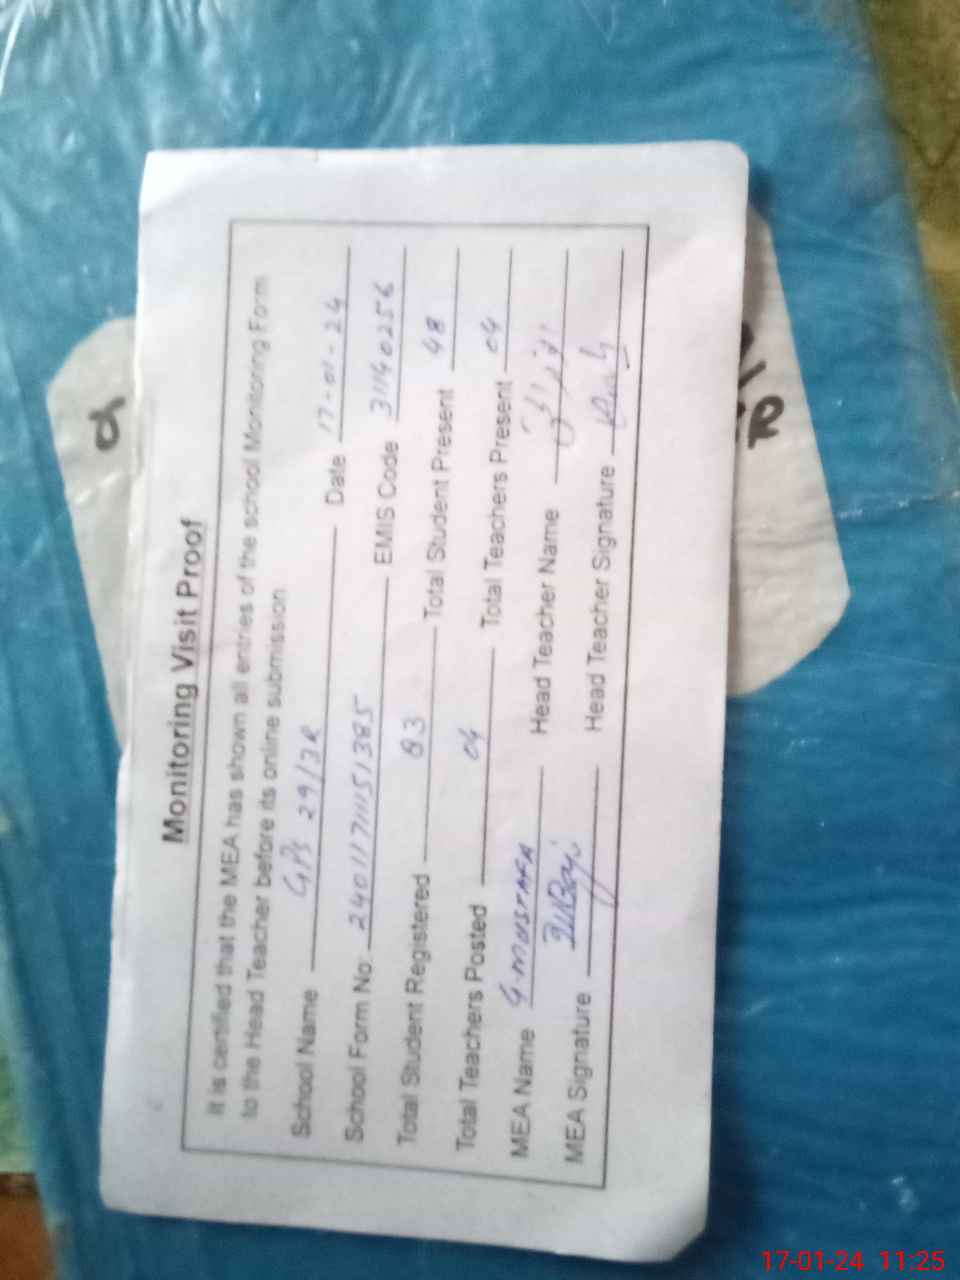 Monitoring Visit Proof
It is certified that the MEA has shown all entries of the school Monitoring Form
to the Head Teacher before its online submission
School Name GPS 29/3R Date 17-01-24
School Form No: 24011711151385 EMIS Code 31140256
Total Student Registered 83 Total Student Present 48
Total Teachers Posted 04 Total Teachers Present 04
MEA Name G.MUSTAFA Head Teacher Name
MEA Signature Head Teacher Signature
17-01-24 11:25